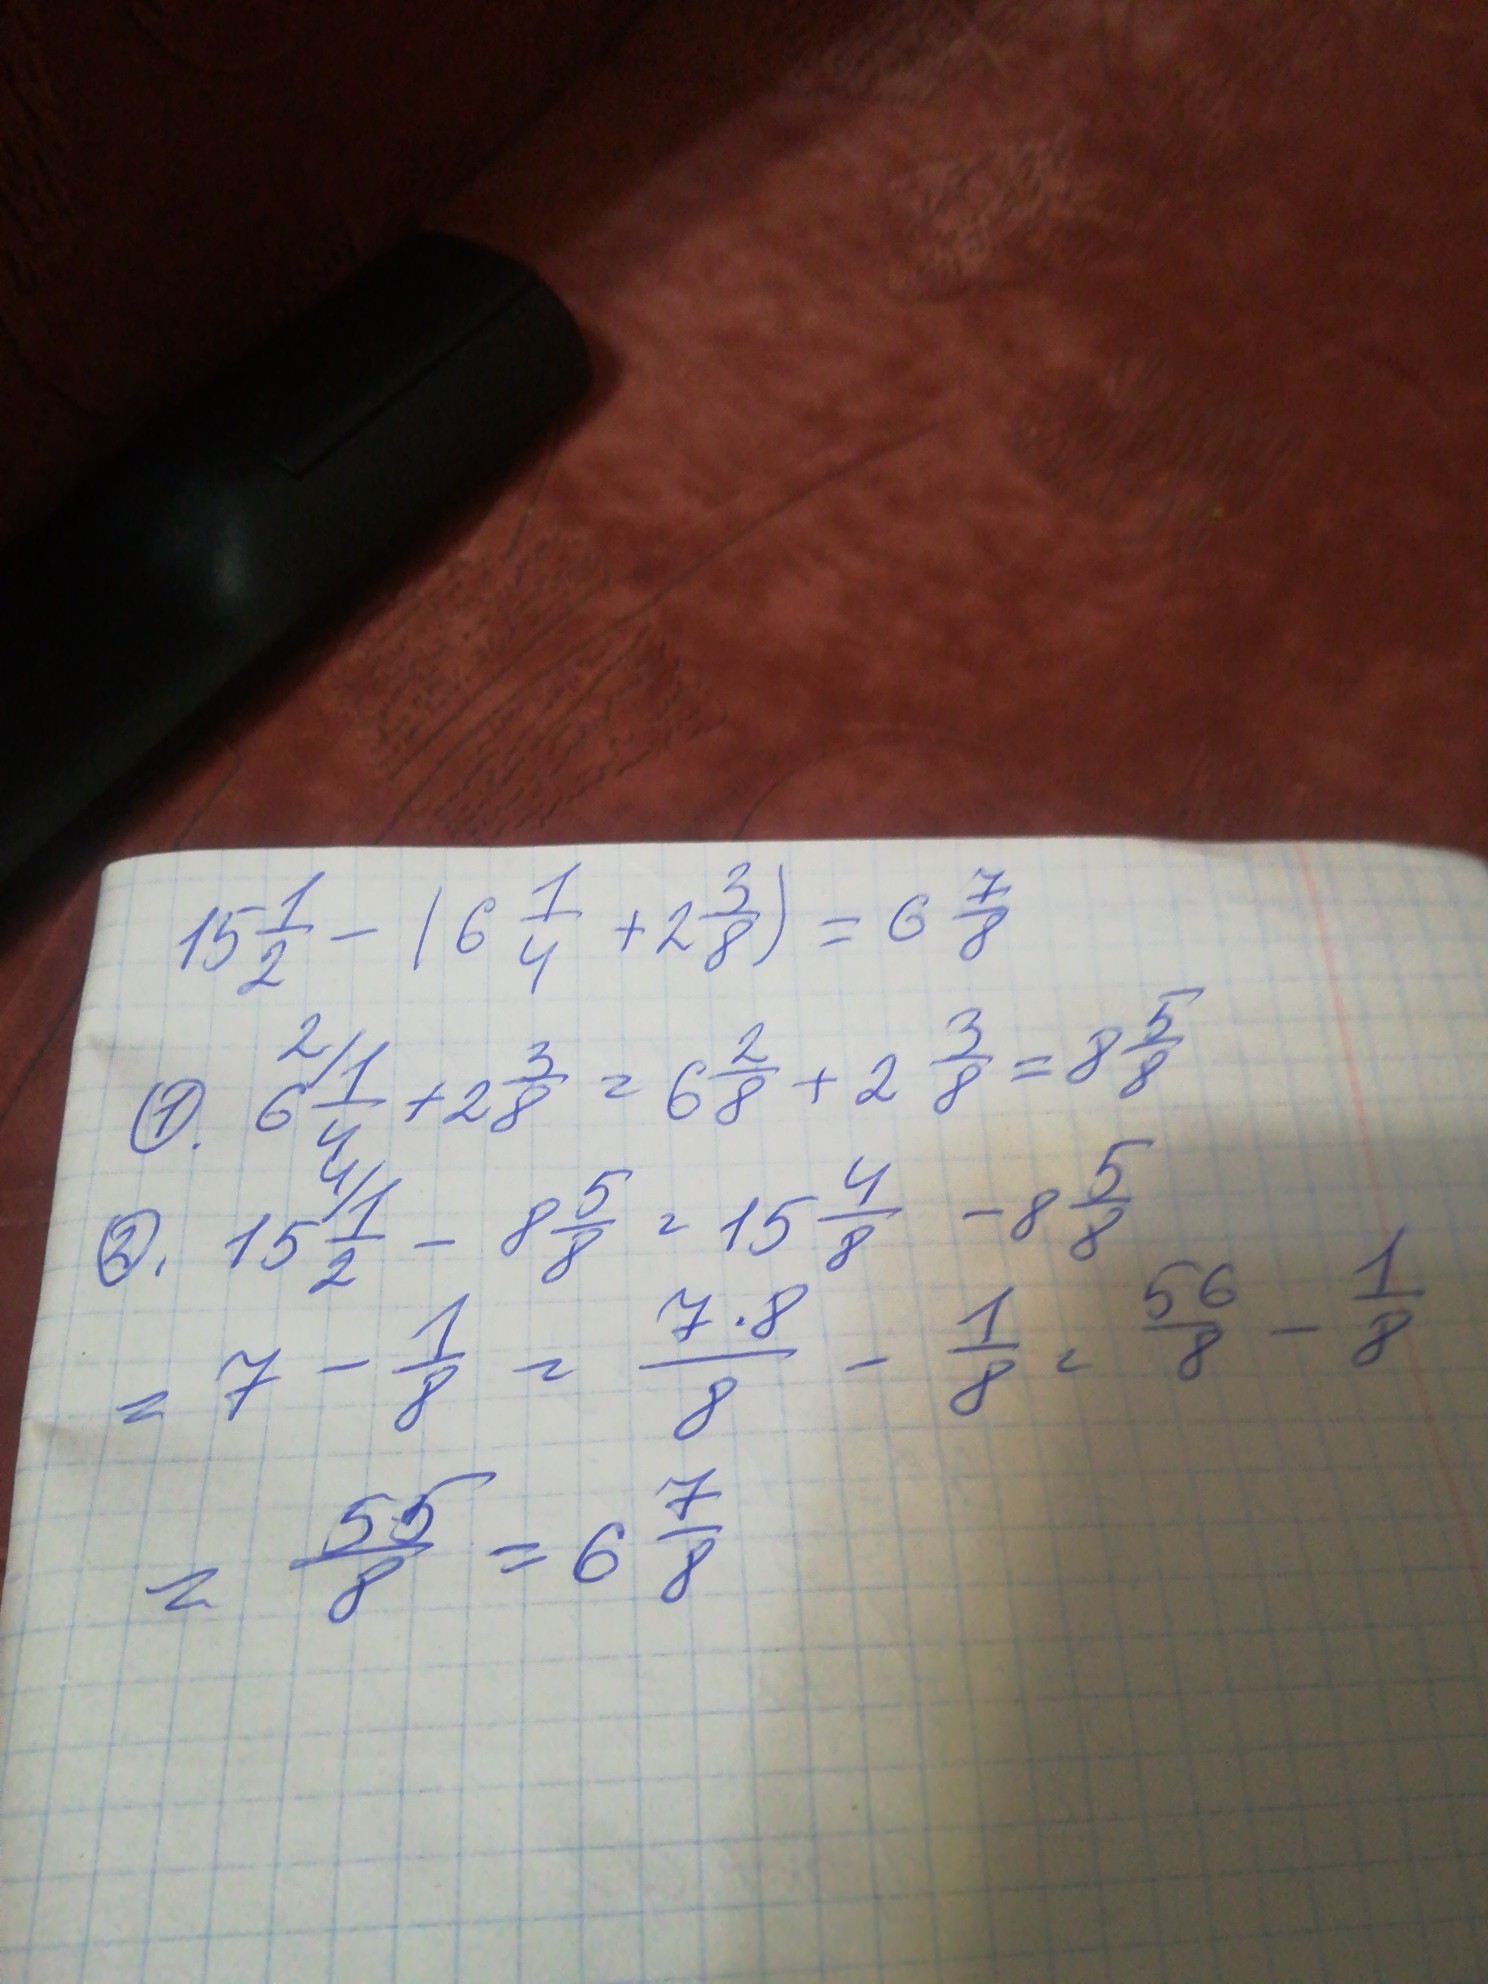 15 1/2 - (6 1/4 + 2 3/8) = 6 7/8
①. 6 2/ 1/4 + 2 3/8 = 6 2/8 + 2 3/8 = 8 5/8
②. 15 4/ 1/2 - 8 5/8 = 15 4/8 - 8 5/8
= 7 - 1/8 = 7·8/8 - 1/8 = 56/8 - 1/8
= 55/8 = 6 7/8